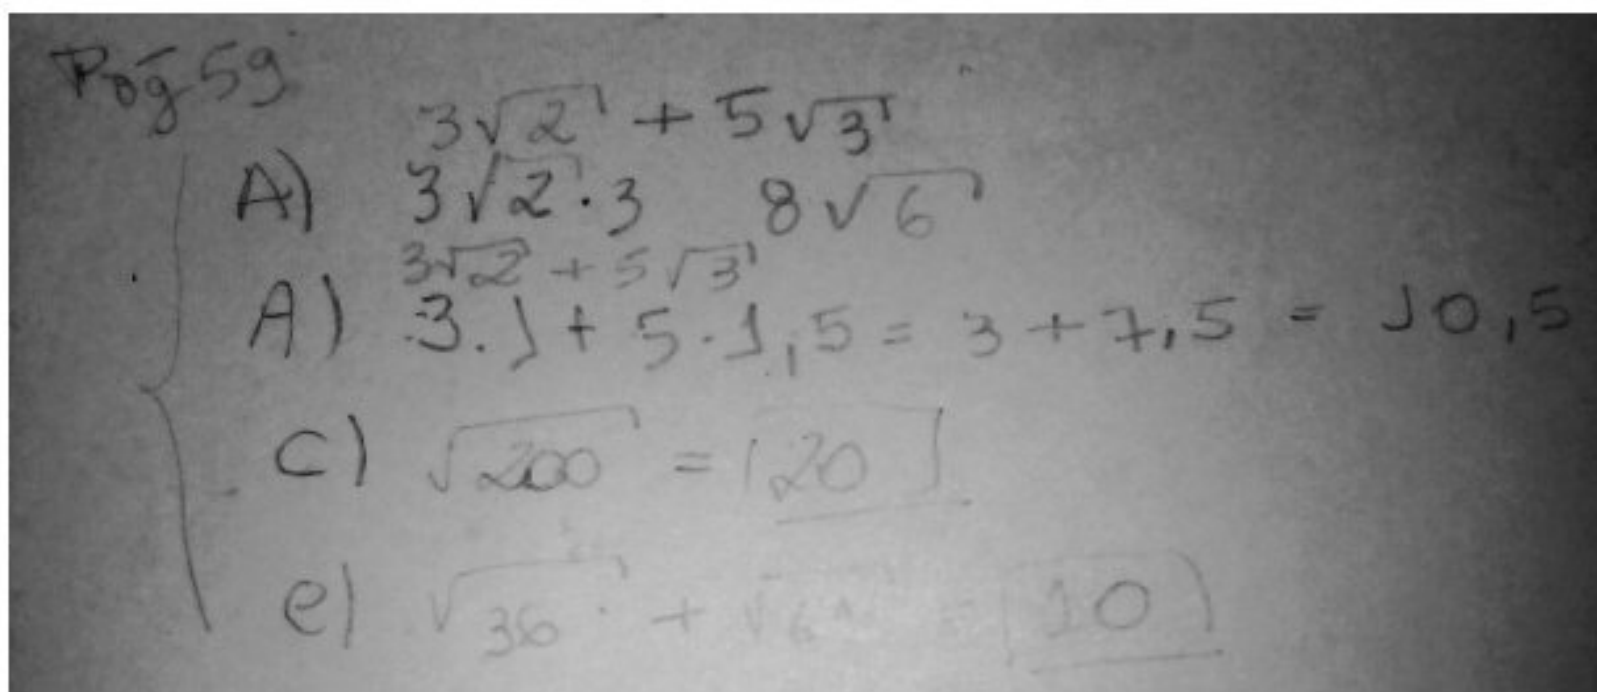 Pág 59
3√2 + 5√3
A) 3√2·3 8√6
3√2 + 5√3
A) 3·1 + 5·1,5 = 3 + 7,5 = 10,5
C) √200 = 20
e) √36 + = 10